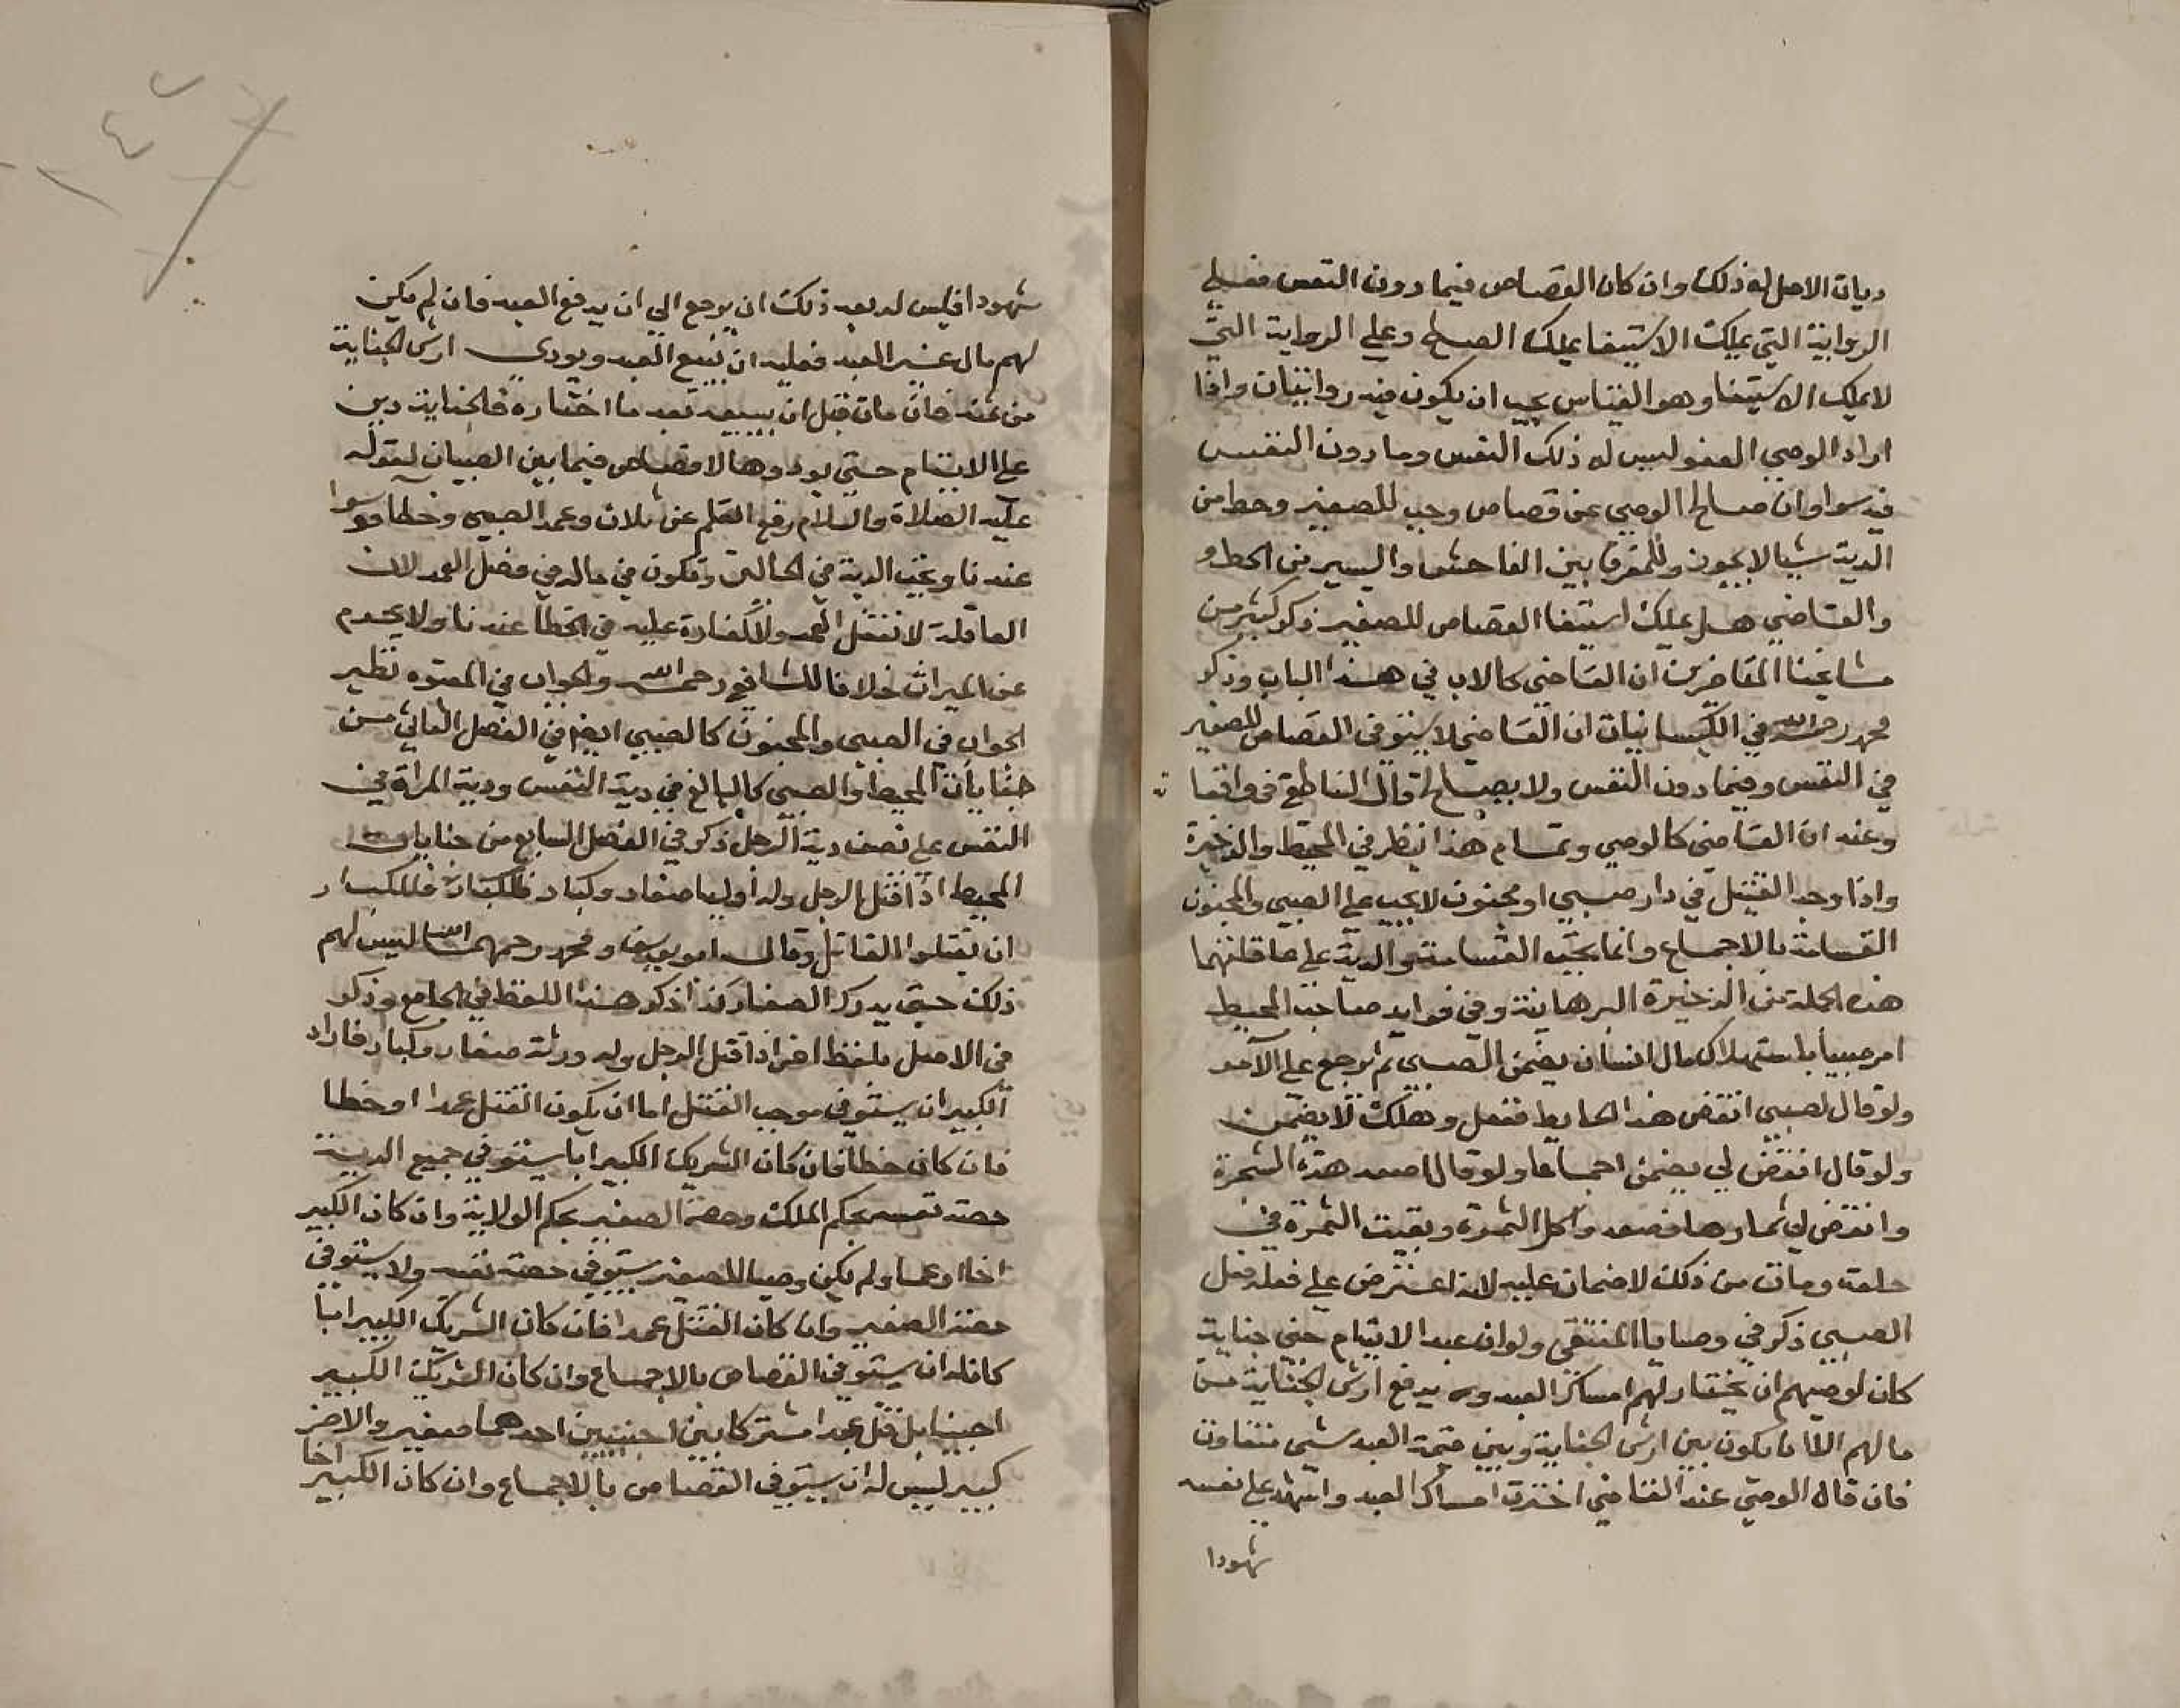 ديات الاصل له ذلك وان كان القصاص فيما دون النفس فعلي
الرواية التي يملك الاستيفا يملك الصلح وعلي الرواية التي
لا يملك الاستيفا وهو القياس يجب ان يكون فيه روايتان واذا
اراد الوصي العفو ليس له ذلك النفس وما دون النفس
فيه سوا وان صالح الوصي عن قصاص وجب للصغير وحط من
الدية شيا لا يجوز وللفرق بين الفاحش واليسير من الحط و
والقاضي هل يملك استيفا القصاص للصغير ذكر كثير من
مشايخنا المتاخرين ان القاضي كالاب في هذا الباب وذكر
محمد رحمه الله في الكيسانيات ان القاضي لا يستوفي القصاص للصغير
في النفس وفيما دون النفس ولا يصالح قال الناطفي في واقعا
وعنه ان القاضي كالوصي وتمام هذا ينظر في المحيط والذخيرة
واذا وجد القتيل في دار صبي او مجنون لا يجب علي الصبي والمجنون
القسامة بالاجماع وانما يجب القسامة والدية علي عاقلتهما
هذه الجملة من الذخيرة البرهانية وفي فوايد صاحب المحيط
امر صبيا باستهلاك مال انسان يضمن الصبي ثم يرجع علي الآمر
ولو قال لصبي انقض هذا الحايط ففعل وهلك لا يضمن
ولو قال انقض لي يضمن اجماعا ولو قال اصعد هذه الشجرة
وانقض لي ثمارها فصعد واكل الثمرة وبقيت الثمرة في
حلقه ومات من ذلك لا ضمان عليه لانه اعترض علي فعله فعل
الصبي ذكر في وصايا المنتقي ولو ان عبد الايتام جني جناية
كان لوصيهم ان يختار لهم امساك العبد و يدفع ارش الجناية من
مالهم الا ما يكون بين ارش الجناية وبين قيمة العبد شي متفاوت
فان قال الوصي عند القاضي اخترت امساك العبد واشهد علي نفسه
شهودا
شهودا فليس له بعد ذلك ان يرجع الي ان يدفع العبد فان لم يكن
لهم مال غير العبد فعليه ان يبيع العبد ويودي ارش الجناية
من ثمنه فان مات قبل ان يبيعه بعد ما اختاره فالجناية دين
علي الايتام حتي يودوها لا قصاص فيما بين الصبيان لقوله
عليه الصلاة والسلام رفع القلم عن ثلاث وعمد الصبي وخطاوه سوا
عندنا ويجب الدية في الحالين وتكون في ماله في فصل العمد لان
العاقلة لا تعقل العمد ولا كفارة عليه في الخطا عندنا ولا يحرم
عن الميراث خلافا للشافعي رحمه الله والجواب في المعتوه نظير
الجواب في الصبي والمجنون كالصبي ايضا في الفصل الثاني من
جنايات المحيط والصبي كالبالغ في دية النفس ودية المراة في
النفس علي نصف دية الرجل ذكر في الفصل السابع من جنايات
المحيط اذا قتل الرجل وله اوليا صغار وكبار فللكبار
ان يقتلوا القاتل وقال ابو يوسف ومحمد رحمهما الله ليس لهم
ذلك حتي يدرك الصغار كذا ذكر هذا اللفظ في الجامع وذكر
في الاصل بلفظ اخر اذا قتل الرجل وله ورثة صغار وكبار فاراد
الكبير ان يستوفي موجب القتل اما ان يكون القتل عمدا او خطا
فان كان خطا فان كان الشريك الكبير ابا يستوفي جميع الدية
حصة نفسه بحكم الملك وحصة الصغير بحكم الولاية وان كان الكبير
اخا او عما ولم يكن وصيا للصغير يستوفي حصة نفسه ولا يستوفي
حصة الصغير وان كان القتل عمدا فان كان الشريك الكبير ابا
كان له ان يستوفي القصاص بالاجماع وان كان الشريك الكبير
اجنبيا بل قتل عبدا مشتركا بين اجنبيين احدهما صغير والاخر
كبير ليس له ان يستوفي القصاص بالاجماع وان كان الكبير اخا